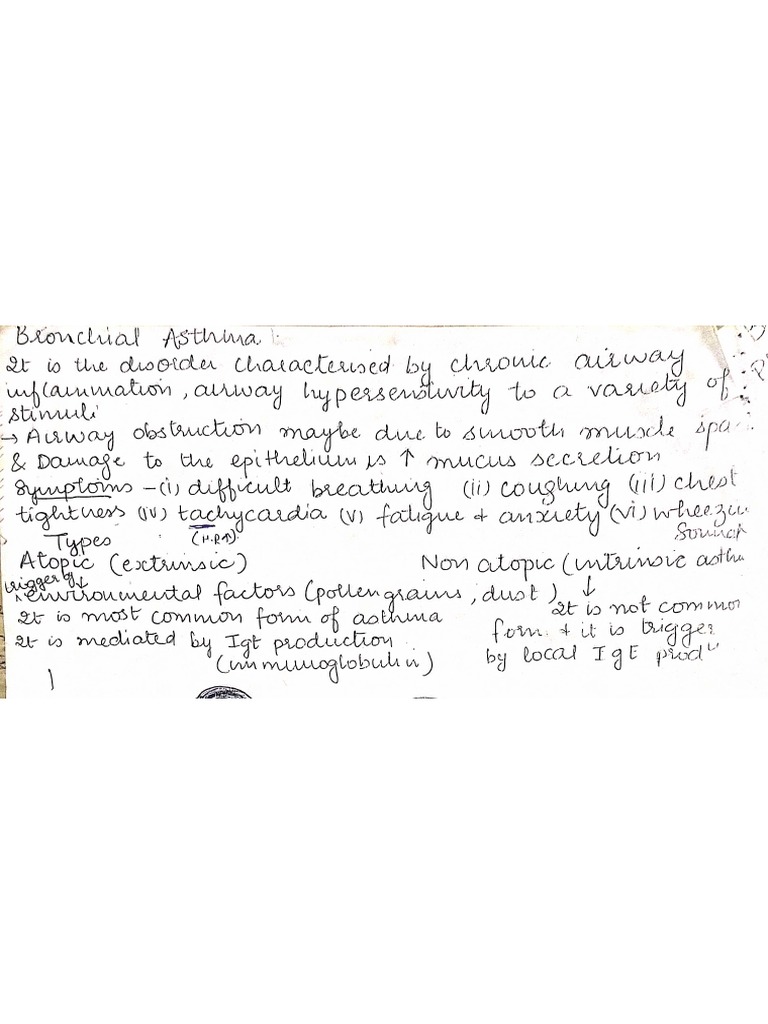 Bronchial Asthma :
It is the disorder characterised by chronic airway
inflammation, airway hypersensitivity to a variety of
stimuli
→ Airway obstruction maybe due to smooth muscle spa
& Damage to the epithelium is ↑ mucus secretion
Symptoms - (i) difficult breathing (ii) coughing (iii) chest
tightness (iv) tachycardia (v) fatigue + anxiety (vi) wheezin
(H.R↑)
Types
Atopic (extrinsic)
Non atopic (intrinsic asthm
trigger by ↓
environmental factors (pollen grains, dust)
↓
It is most common form of asthma
It is not common
It is mediated by Igt production
form + it is trigger
(immunoglobulin)
by local IgE prod